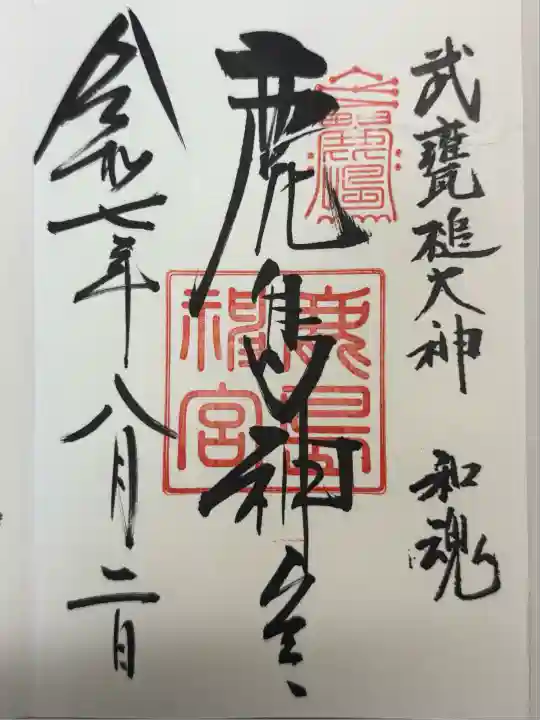 武甕槌大神 和魂
鹿島神宮
鹿島
神宮
令和七年八月二日